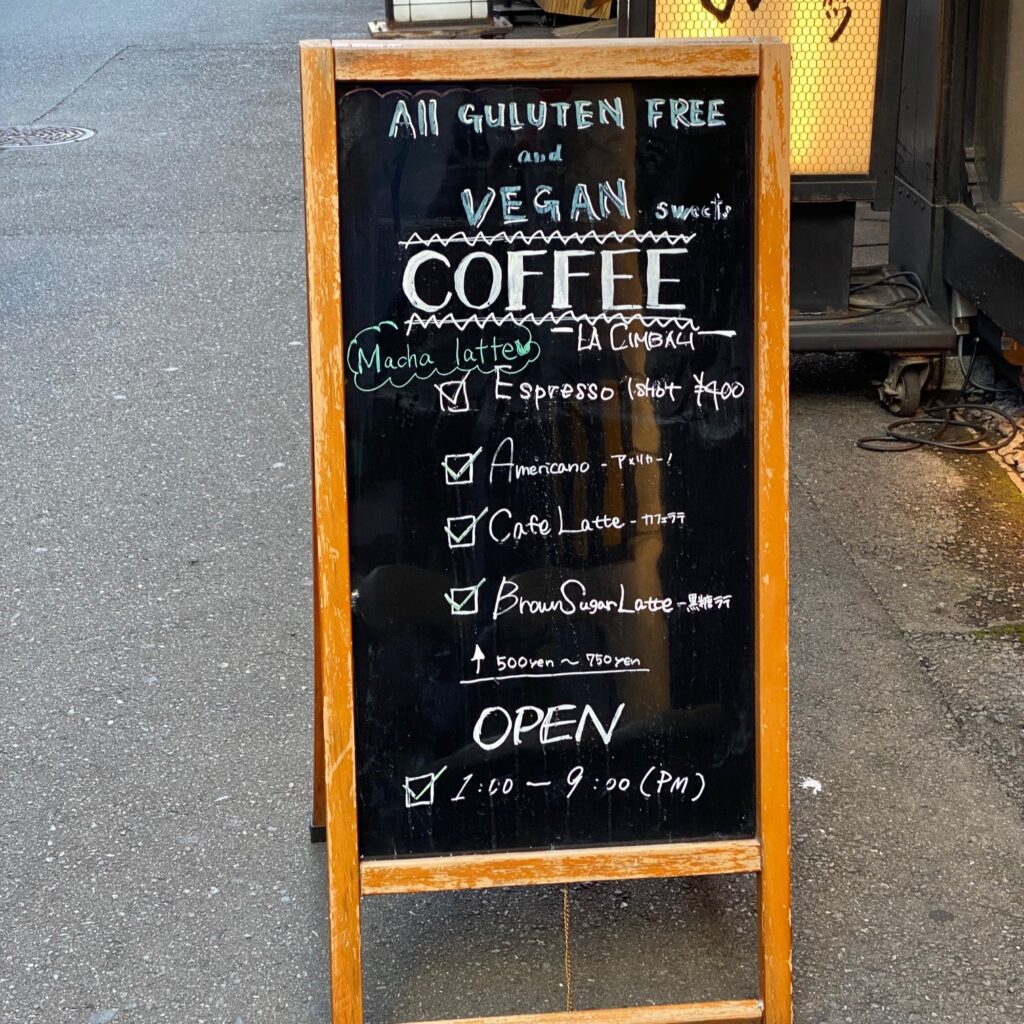 All GULUTEN FREE
and
VEGAN sweets
COFFEE
LA CIMBALI
Macha latte
Espresso 1shot ¥400
Americano - アメリカー!
Cafe Latte - カフェラテ
Brown Sugar Latte - 黒糖ラテ
↑ 500yen ~ 750yen
OPEN
1:00 - 9:00 (PM)